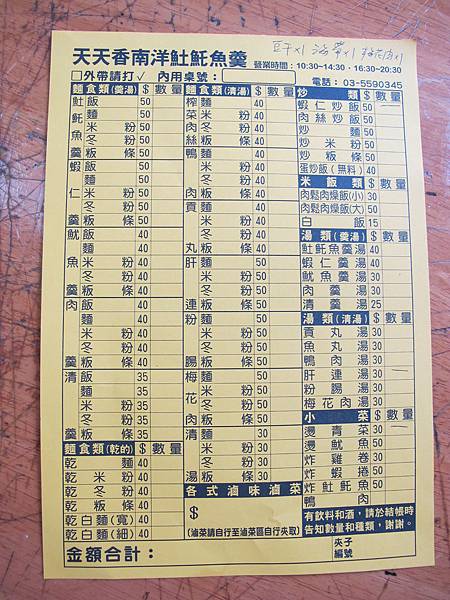 豆干x1 海帶x1
天天香南洋𩵚魠魚羹
營業時間：10:30~14:30．16:30~20:30
□外帶請打✓ 內用桌號：
電話：03-5590345
麵食類(羹湯) $ 數量
𩵚魠魚羹
飯 50
麵 50
米粉 50
冬粉 50
粄條 50
蝦仁羹
飯 50
麵 50
米粉 50
冬粉 50
粄條 50
魷魚羹
飯 40
麵 40
米粉 40
冬粉 40
粄條 40
肉羹
飯 40
麵 40
米粉 40
冬粉 40
粄條 40
清羹
飯 35
麵 35
米粉 35
冬粉 35
粄條 35
麵食類(乾的) $ 數量
乾麵 40
乾米粉 40
乾冬粉 40
乾粄條 40
乾白麵(寬) 40
乾白麵(細) 40
金額合計：
麵食類(清湯) $ 數量
榨菜肉絲
麵 40
米粉 40
冬粉 40
粄條 40
鴨肉
麵 40
米粉 40
冬粉 40
粄條 40
貢丸
麵 40
米粉 40
冬粉 40
粄條 40
肝連
麵 50
米粉 50
冬粉 50
粄條 50
粉腸
麵 50
米粉 50
冬粉 50
粄條 50
梅花肉
麵 50
米粉 50
冬粉 50
粄條 50
清湯
麵 30
米粉 30
冬粉 30
粄條 30
各式滷味滷菜
$
(滷菜請自行至滷菜區自行夾取)
炒類 $ 數量
蝦仁炒飯 50
肉絲炒飯 50
炒麵 50
炒米粉 50
炒粄條 50
蛋炒飯(無料) 40
米飯類 $ 數量
肉鬆肉燥飯(小) 30
肉鬆肉燥飯(大) 50
白飯 15
湯類(羹湯) $ 數量
𩵚魠魚羹湯 40
蝦仁羹湯 40
魷魚羹湯 30
肉羹湯 30
清羹湯 25
湯類(清湯) $ 數量
貢丸湯 30
魚丸湯 30
鴨肉湯 30
肝連湯 30
粉腸湯 30
梅花肉湯 30
小菜 $ 數量
燙青菜 30
燙魷魚 50
炸雞卷 50
炸蝦捲 50
炸𩵚魠魚 50
鴨肉
有飲料和酒，請於結帳時
告知數量和種類，謝謝。
夾子
編號